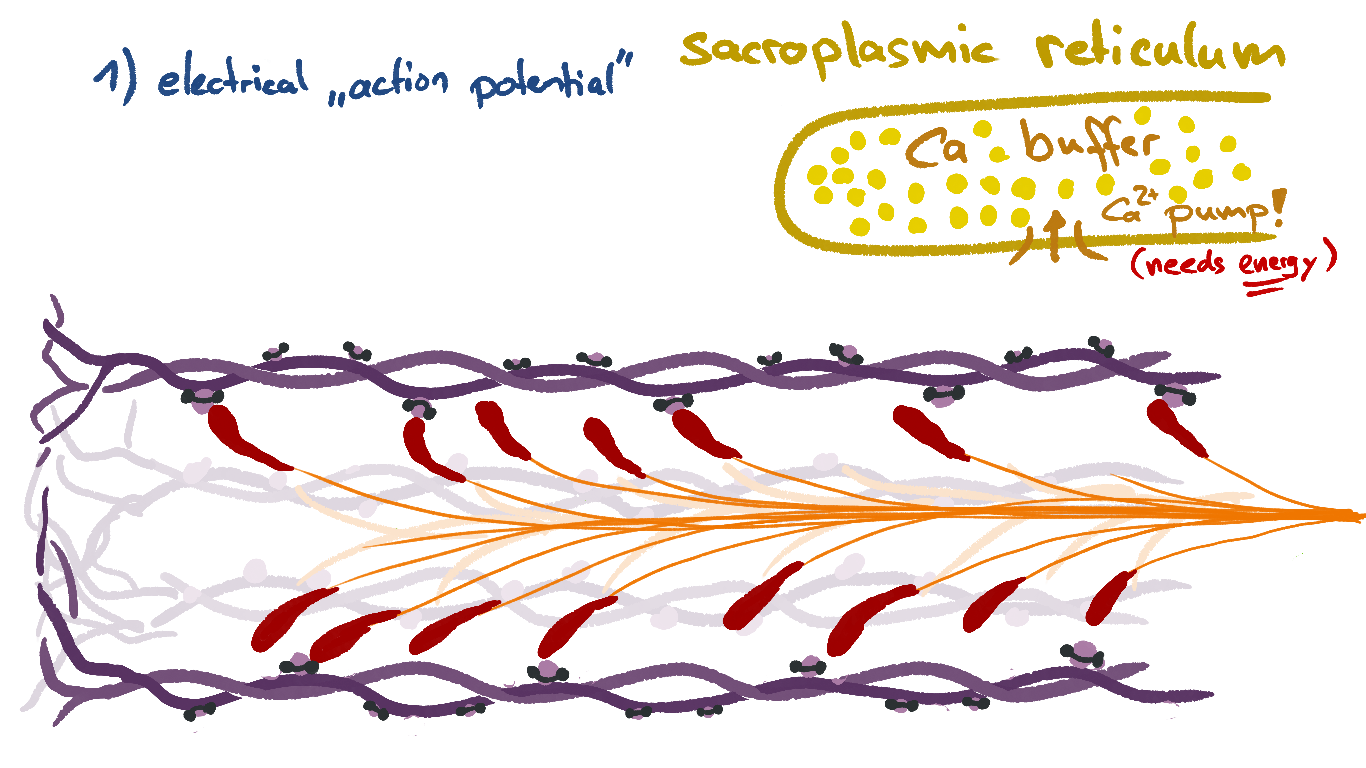 1) electrical „action potential"
sacroplasmic reticulum
Ca buffer
Ca²⁺ pump!
(needs energy)